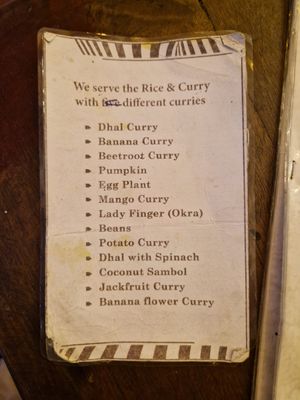 We serve the Rice & Curry
with different curries
Dhal Curry
Banana Curry
Beetroot Curry
Pumpkin
Egg Plant
Mango Curry
Lady Finger (Okra)
Beans
Potato Curry
Dhal with Spinach
Coconut Sambol
Jackfruit Curry
Banana flower Curry